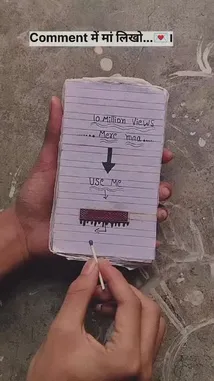 Comment में मां लिखो...💌।
10 Million Views
...... Mere maa ......
USE Me